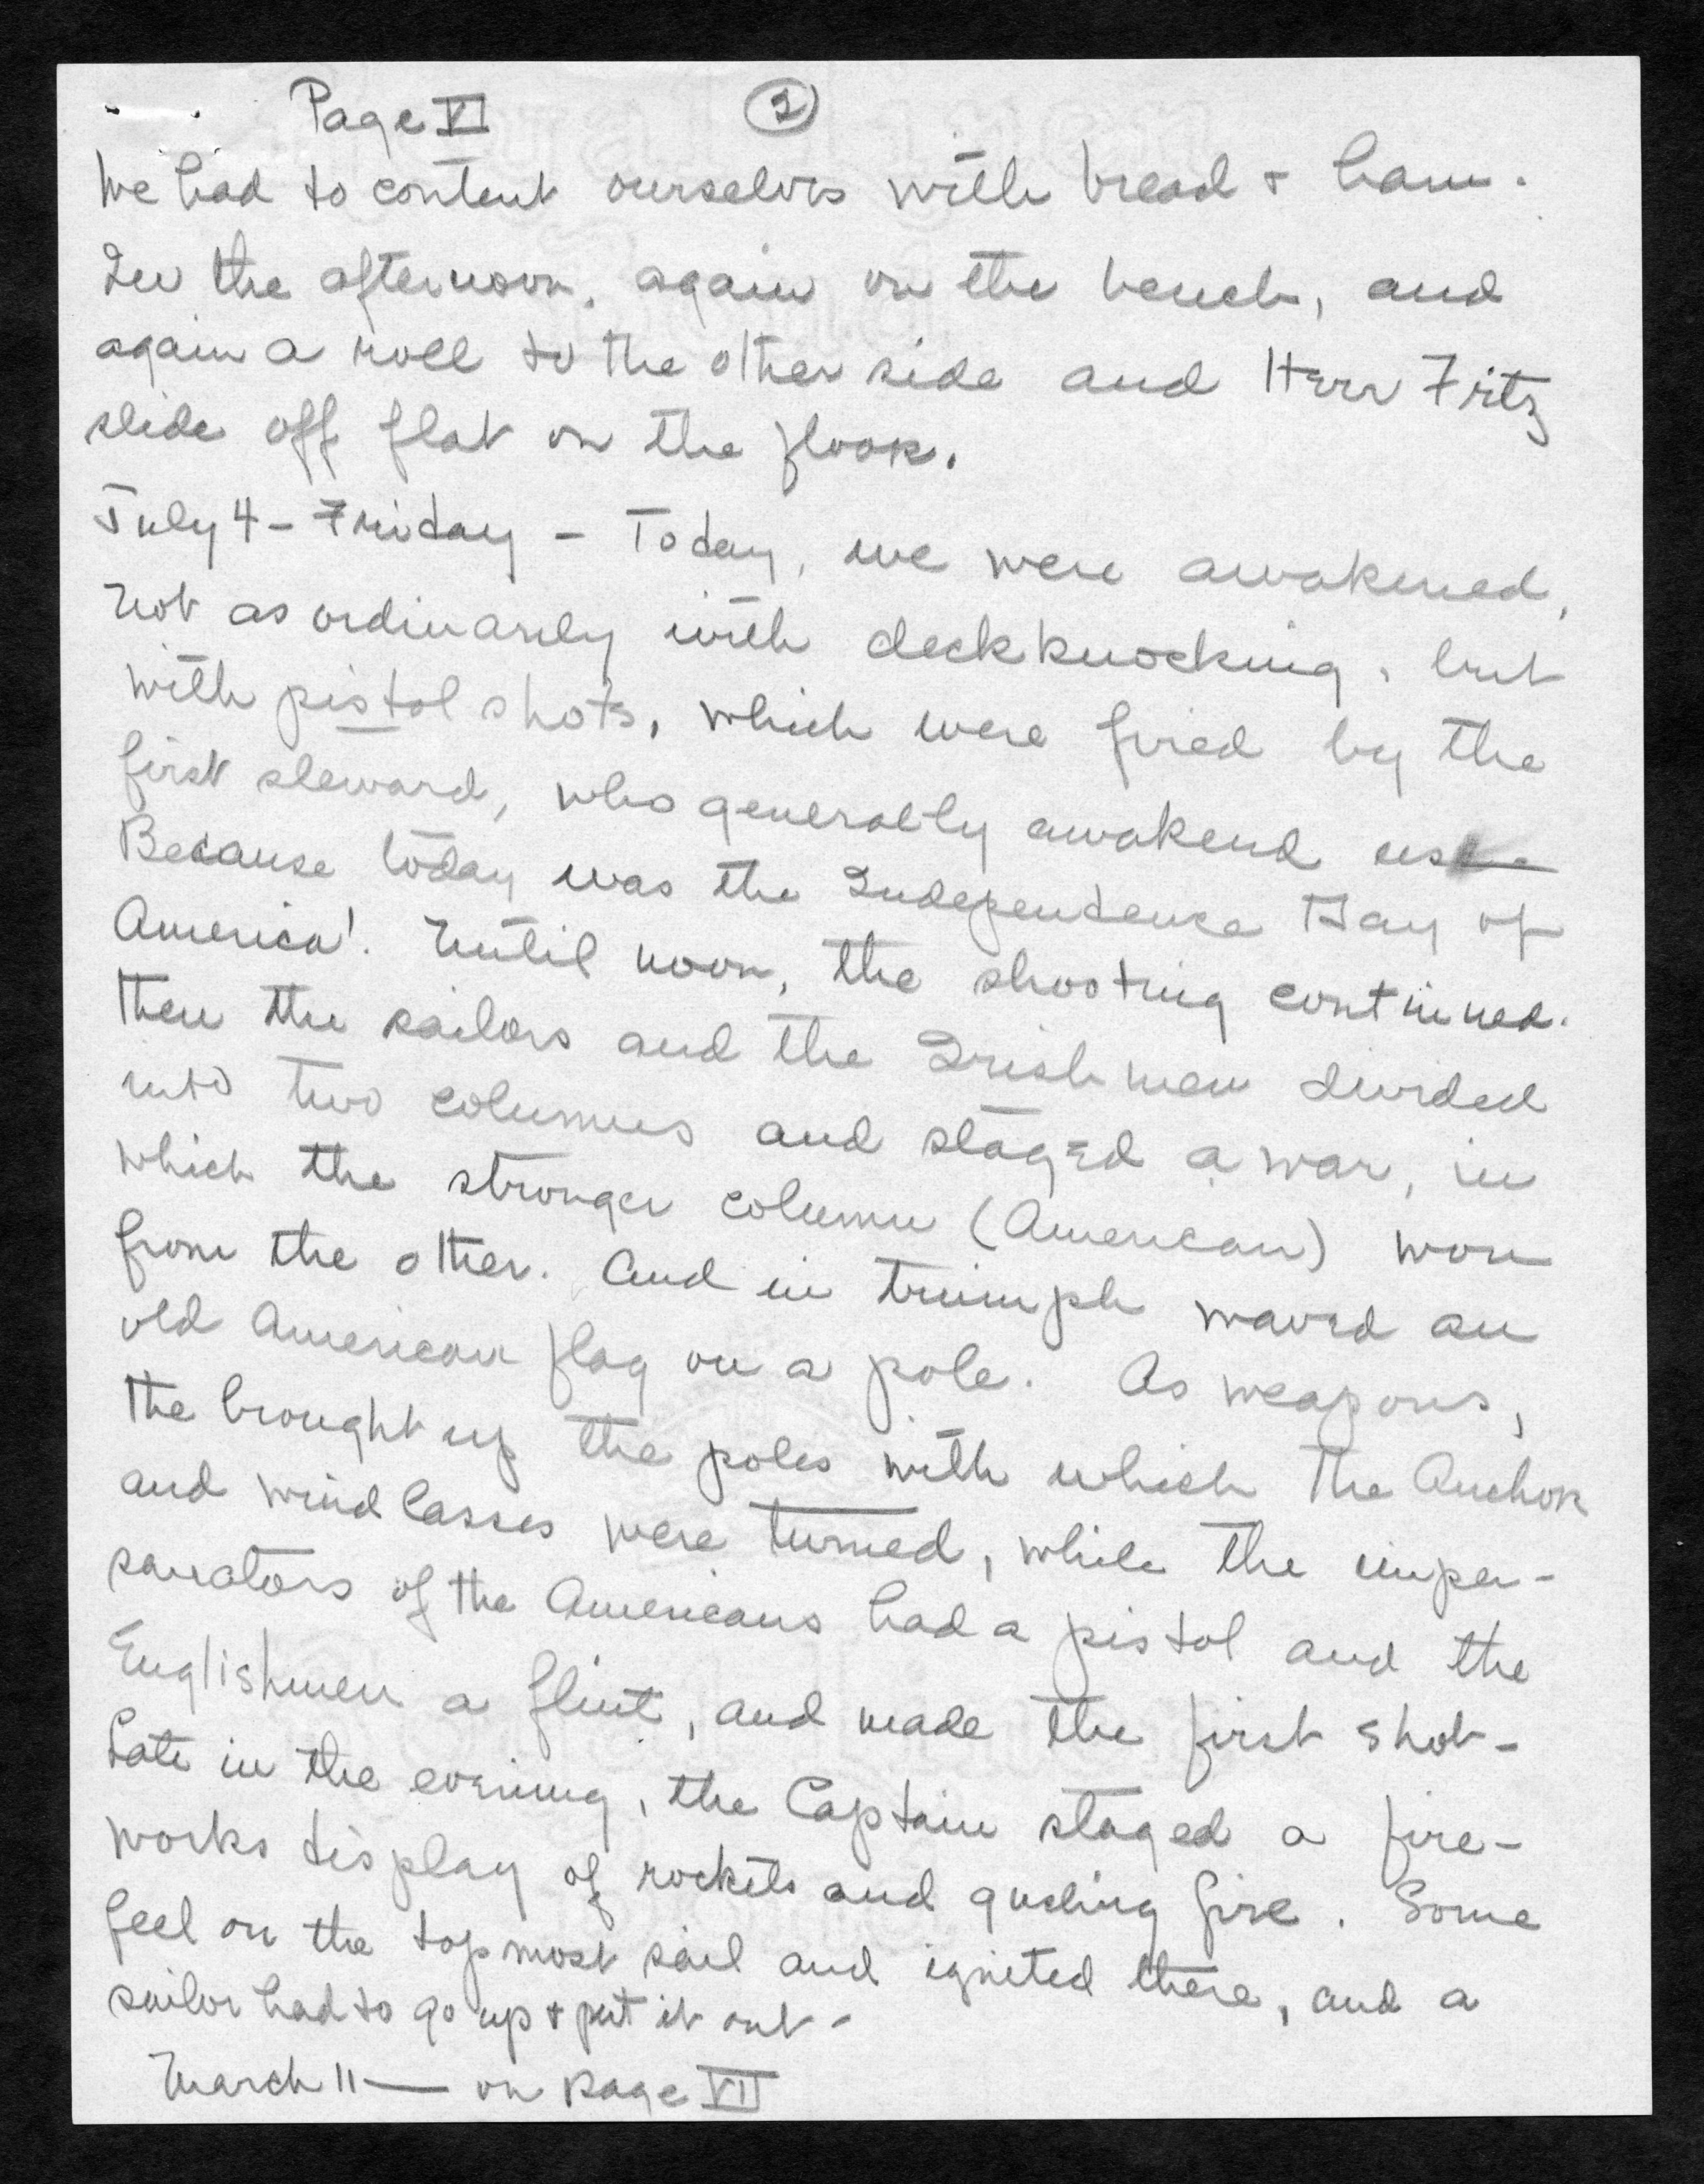 Page VI ②
We had to content ourselves with bread + ham.
In the afternoon, again on the bench, and
again a roll to the other side and Herr Fritz
slide off flat on the floor.
July 4 - Friday - Today, we were awakened,
not as ordinarily with deckknocking, but
with pistol shots, which were fired by the
first steward, who generally awakend us
Because today was the Independence Day of
America! Until noon, the shooting continued.
then the sailors and the Irishmen divided
into two columns and staged a war, in
which the stronger column (American) won
from the other. And in triumph waved an
old American flag on a pole. As weapons,
the brought up the poles with which the Anchor
and windlasses were turned, while the imper-
sonators of the Americans had a pistol and the
Englishmen a flint, and made the first shot -
Late in the evening, the Captain staged a fire-
works display of rockets and gushing fire. Some
feel on the topmost sail and ignited there, and a
sailor had to go up + put it out -
March 11 — on page VII